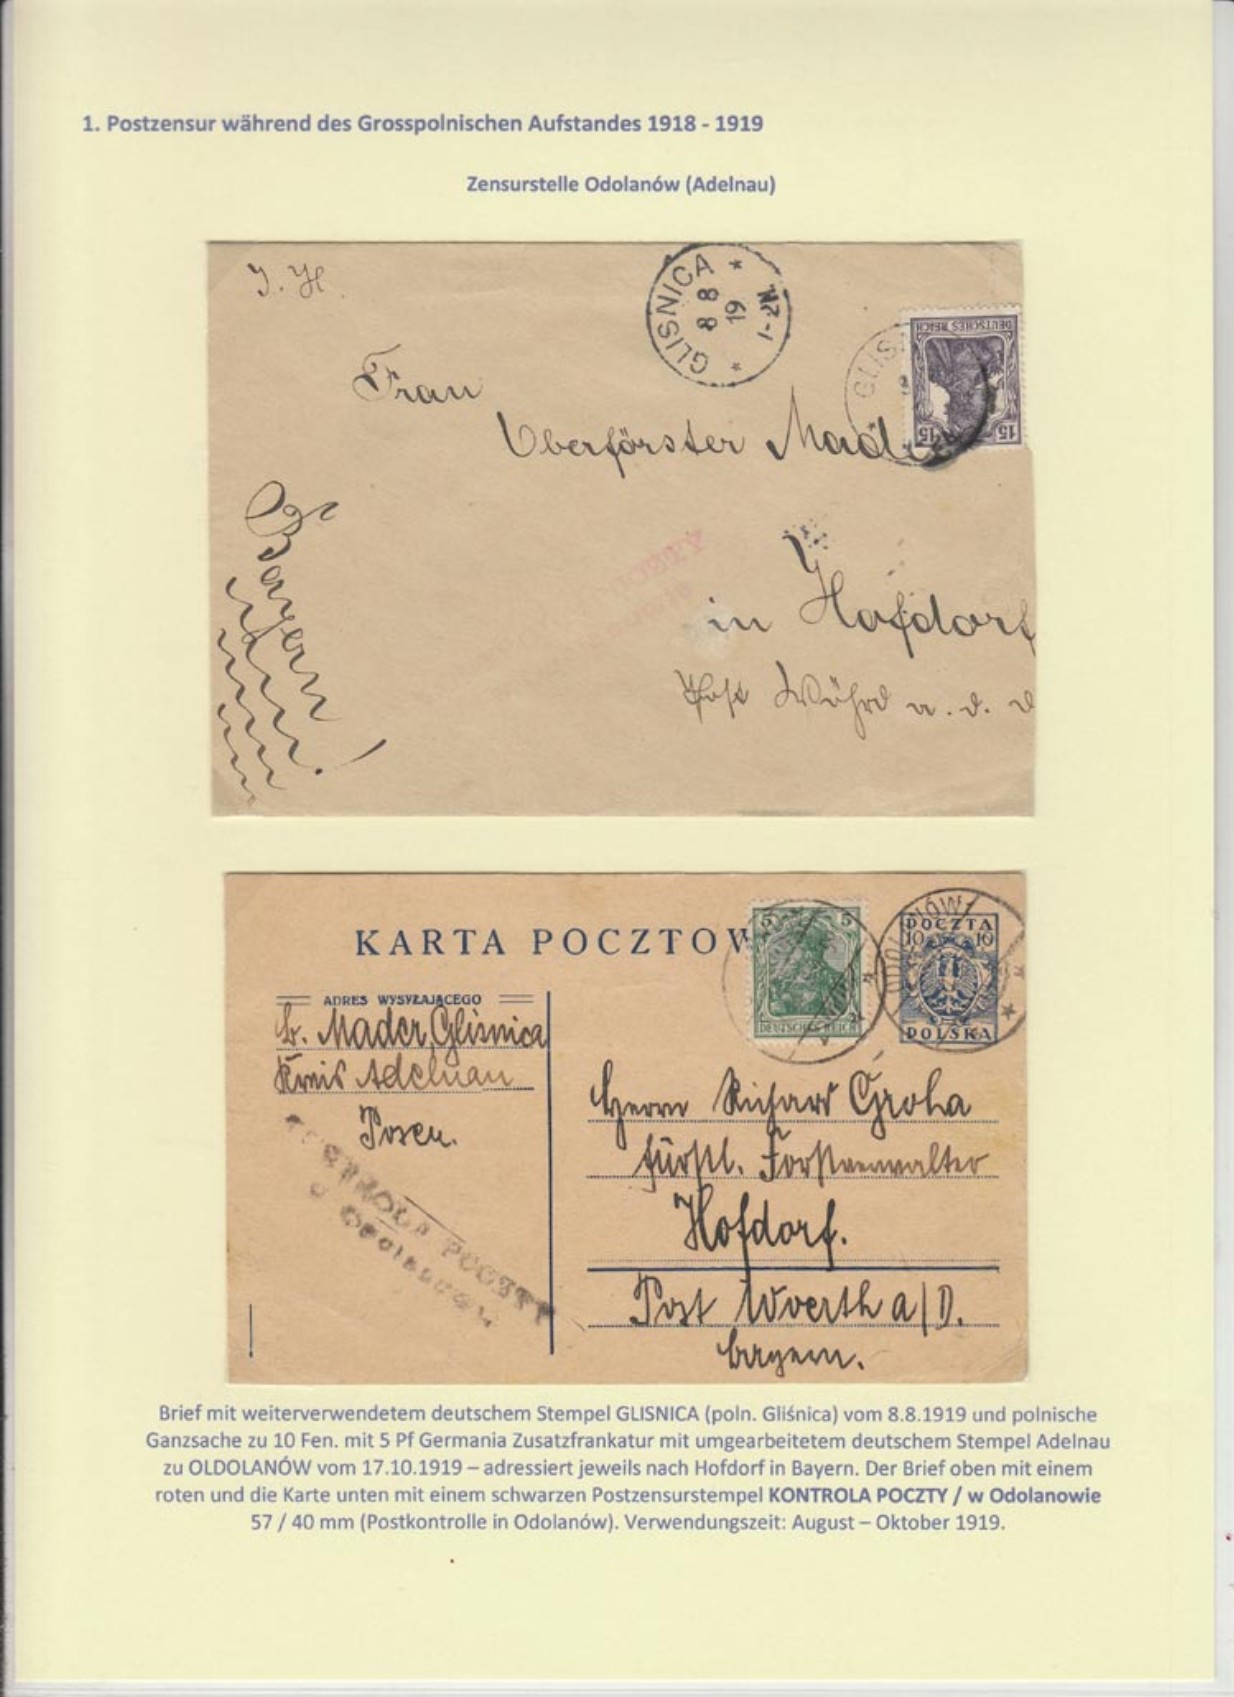 1. Postzensur während des Grosspolnischen Aufstandes 1918 - 1919
Zensurstelle Odolanów (Adelnau)
J. H.
* GLISNICA *
8 8
19
N2-1
DEUTSCHES REICH
15 15
GLIS
Frau
Oberförster Mader
in Hofdorf
Post Wöhrd a. d. D
Bayern!
KARTA POCZTOW
5 5
DEUTSCHES REICH
ODOLANÓW
POCZTA
10 10
POLSKA
ADRES WYSYŁAJĄCEGO
b. Mader, Glisnica
Kreis Adelnau
Posen.
KONTROLA POCZTY
w Odolanowie
Herrn Richard Groha
fürstl. Forstverwalter
Hofdorf.
Post Woerth a/D.
Bayern.
Brief mit weiterverwendetem deutschem Stempel GLISNICA (poln. Gliśnica) vom 8.8.1919 und polnische
Ganzsache zu 10 Fen. mit 5 Pf Germania Zusatzfrankatur mit umgearbeitetem deutschem Stempel Adelnau
zu OLDOLANÓW vom 17.10.1919 – adressiert jeweils nach Hofdorf in Bayern. Der Brief oben mit einem
roten und die Karte unten mit einem schwarzen Postzensurstempel KONTROLA POCZTY / w Odolanowie
57 / 40 mm (Postkontrolle in Odolanów). Verwendungszeit: August – Oktober 1919.